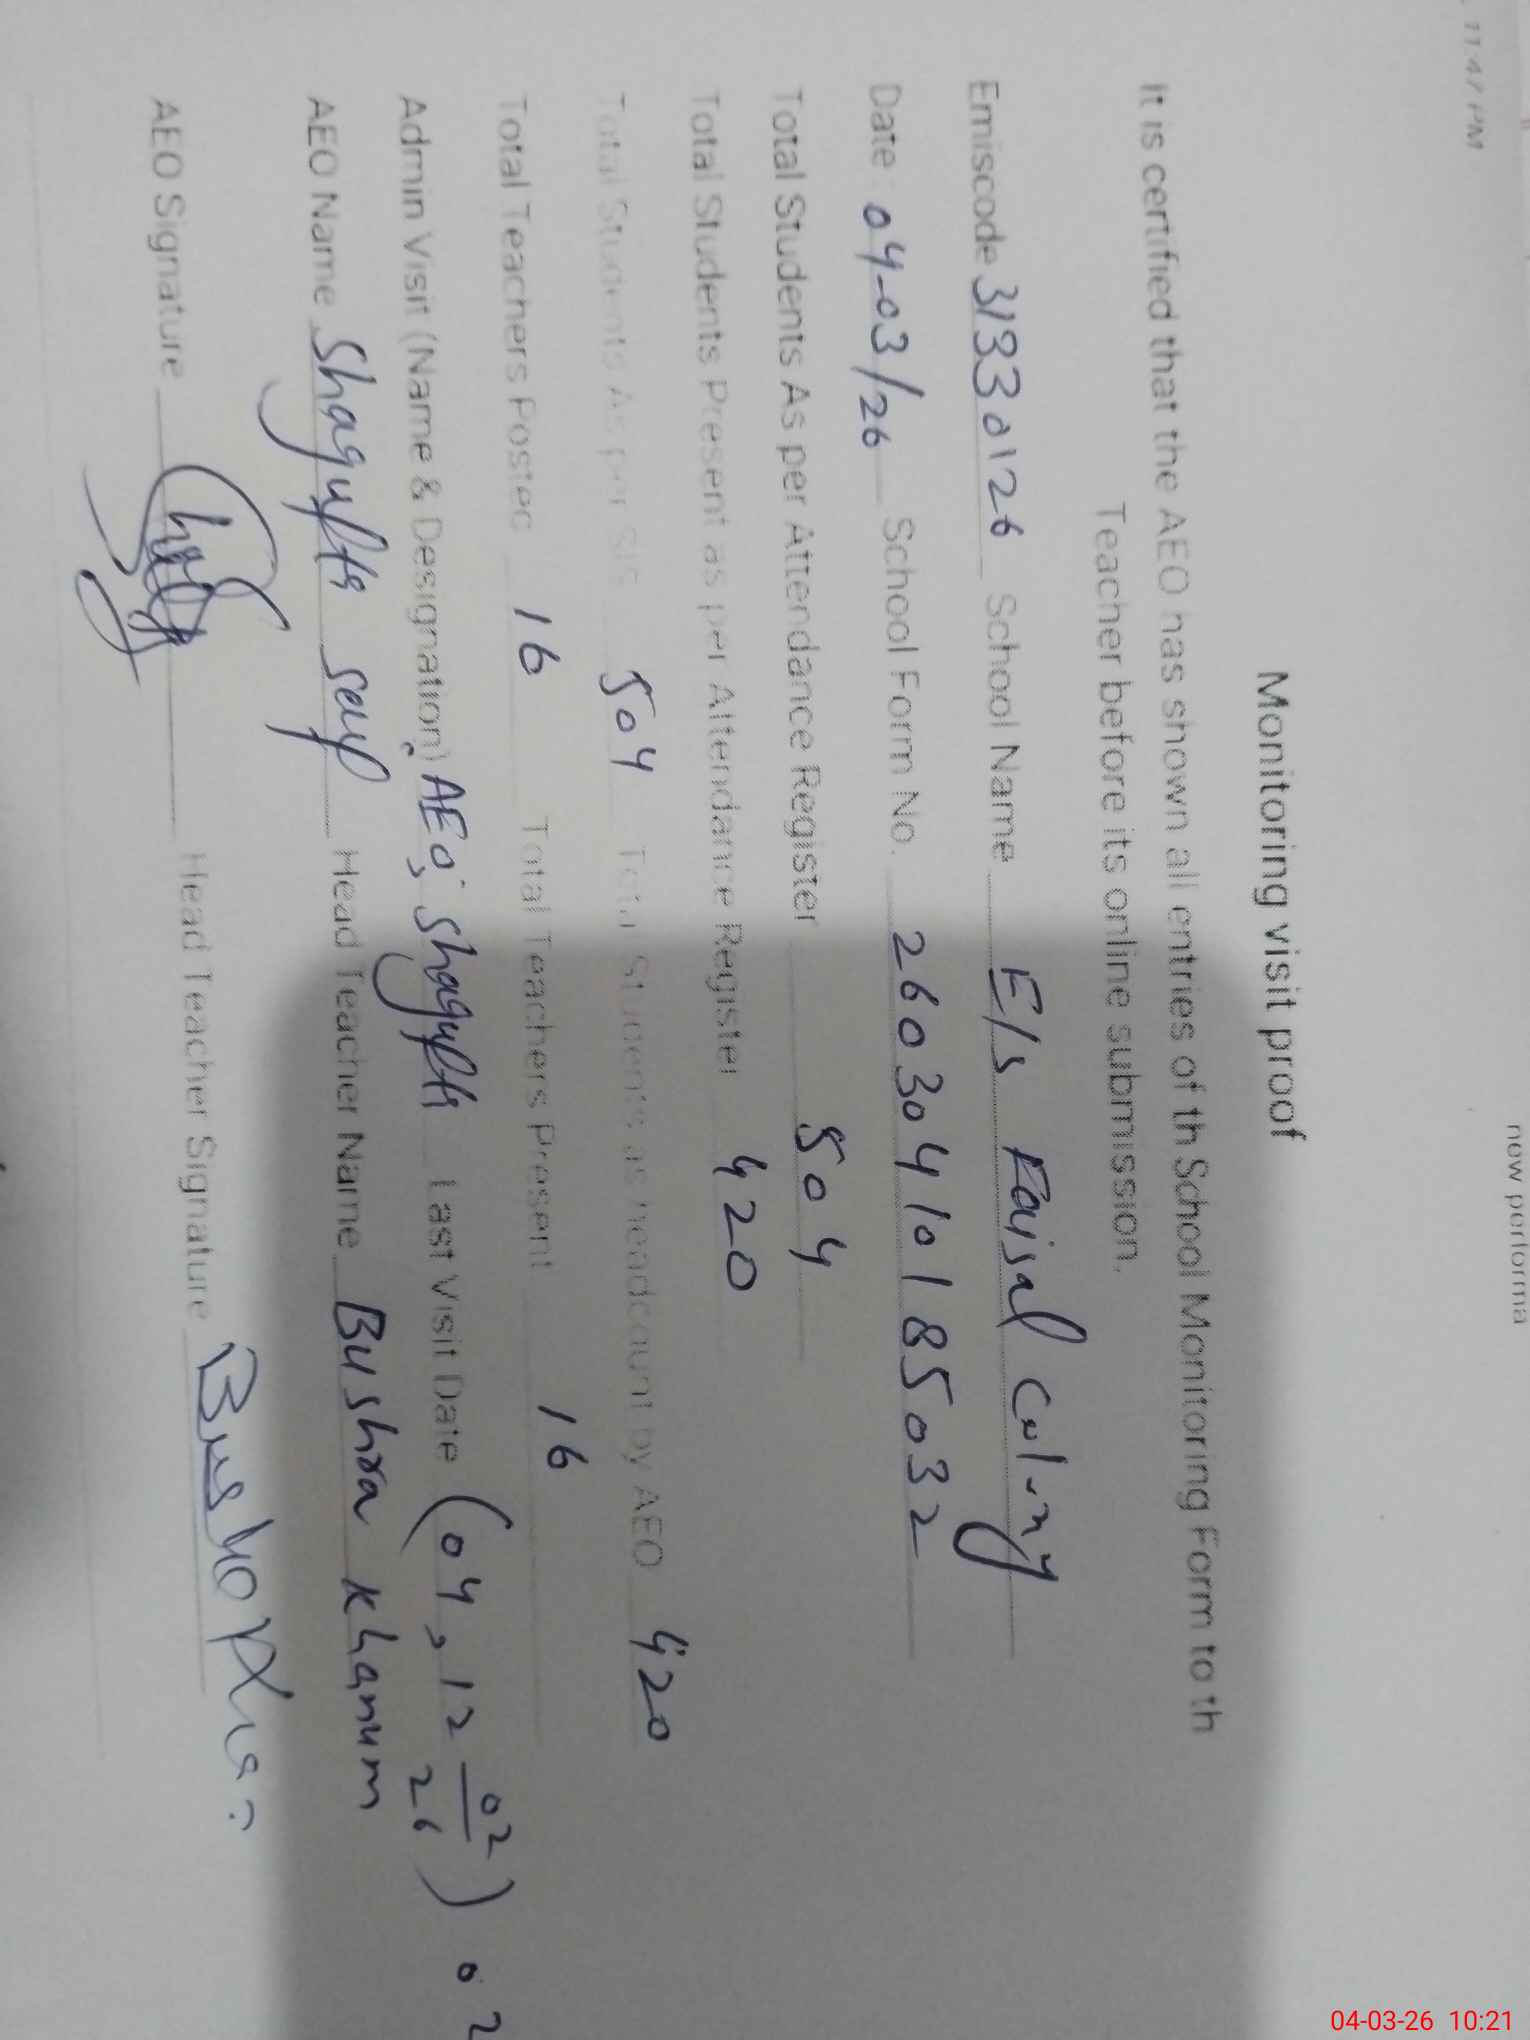 11:47 PM
new performa
Monitoring visit proof
It is certified that the AEO has shown all entries of th School Monitoring Form to th
Teacher before its online submission.
Emiscode 31330126 School Name E/s Faisal Colony
Date: 04-03/26 School Form No. 26030410185032
Total Students As per Attendance Register 504
Total Students Present as per Attendance Register 420
Total Students As per SIS 504 Total Students as headcount by AEO 420
Total Teachers Posted 16 Total Teachers Present 16
Admin Visit (Name & Designation) AEO, Shagufta Last Visit Date (04, 12 02/26) 02
AEO Name Shagufta Head Teacher Name Bushra Khanum
AEO Signature Head Teacher Signature Bushra
04-03-26 10:21